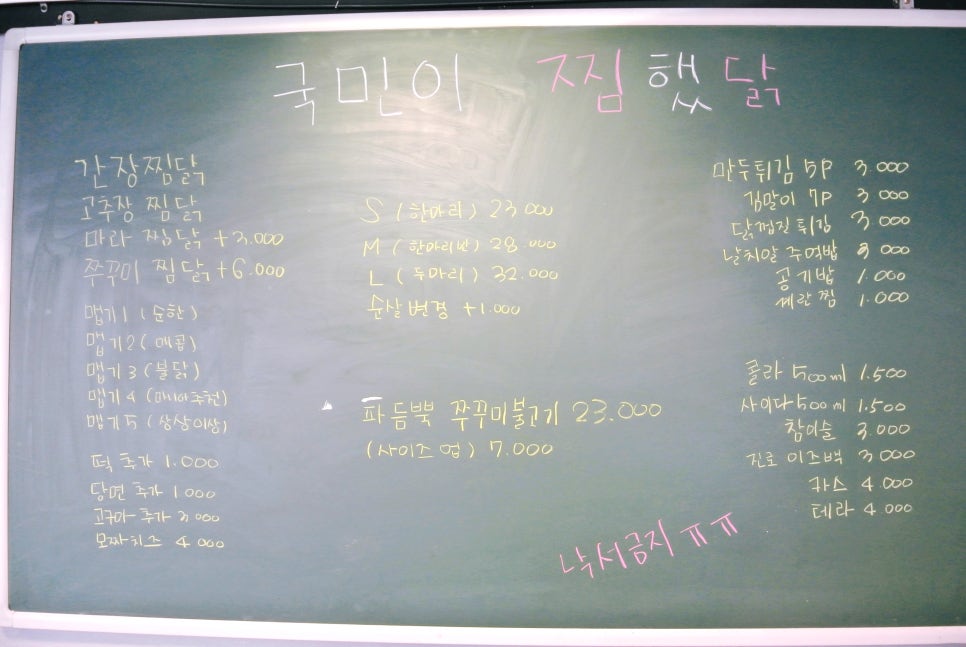 국민이 찜했닭
간장찜닭
고추장 찜닭
마라 찜닭 +3.000
쭈꾸미 찜닭 +6.000
맵기1 (순한)
맵기2 (매콤)
맵기3 (불닭)
맵기4 (매니아추천)
맵기5 (상상이상)
떡 추가 1.000
당면 추가 1000
고구마 추가 3000
모짜치즈 4000
S (한마리) 23000
M (한마리반) 28.000
L (두마리) 32.000
순살변경 +1.000
파듬뿍 쭈꾸미불고기 23.000
(사이즈 업) 7.000
만두튀김 5P 3.000
김말이 7P 3000
닭껍질 튀김 3000
날치알 주먹밥 3000
공기밥 1.000
계란찜 1.000
콜라 500ml 1.500
사이다500ml 1.500
참이슬 3.000
진로 이즈백 3000
카스 4.000
테라 4.000
낙서금지 ㅠㅠ